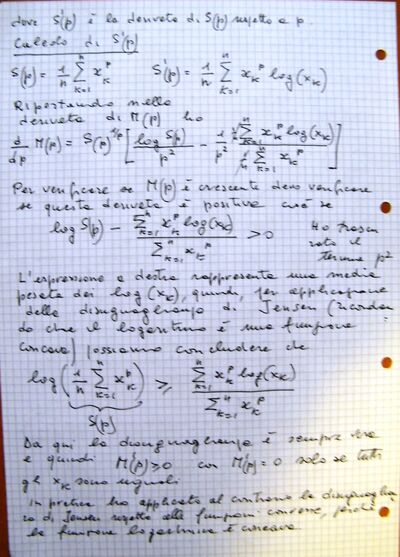 dove S'(p) è la derivata di S(p) rispetto a p.
Calcolo di S'(p)
S(p) = 1/n Σ_{k=1}^{n} x_k^p    S'(p) = 1/n Σ_{k=1}^{n} x_k^p log(x_k)
Riportando nella
derivata di M(p) ho
d/dp M(p) = S(p)^{1/p} [ log S(p) / p² - 1/p² (1/n Σ_{k=1}^{n} x_k^p log(x_k)) / (1/n Σ_{k=1}^{n} x_k^p) ]
Per verificare se M(p) è crescente devo verificare
se questa derivata è positiva cioè se
log S(p) - (Σ_{k=1}^{n} x_k^p log(x_k)) / (Σ_{k=1}^{n} x_k^p) > 0
Ho trascu
rato il
termine p²
L'espressione a destra rappresenta una media
pesata dei log(x_k), quindi, per applicazione
della disuguaglianza di Jensen (ricordan
do che il logaritmo è una funzione
concava) possiamo concludere che
log( 1/n Σ_{k=1}^{n} x_k^p ) ≥ (Σ_{k=1}^{n} x_k^p log(x_k)) / (Σ_{k=1}^{n} x_k^p)
S(p)
Da qui la disuguaglianza è sempre vera
e quindi M'(p) > 0 con M'(p) = 0 solo se tutti
gli x_k sono uguali
In pratica ho applicato al contrario la disuguaglian
za di Jensen rispetto alle funzioni convesse, perché
la funzione logaritmica è concava